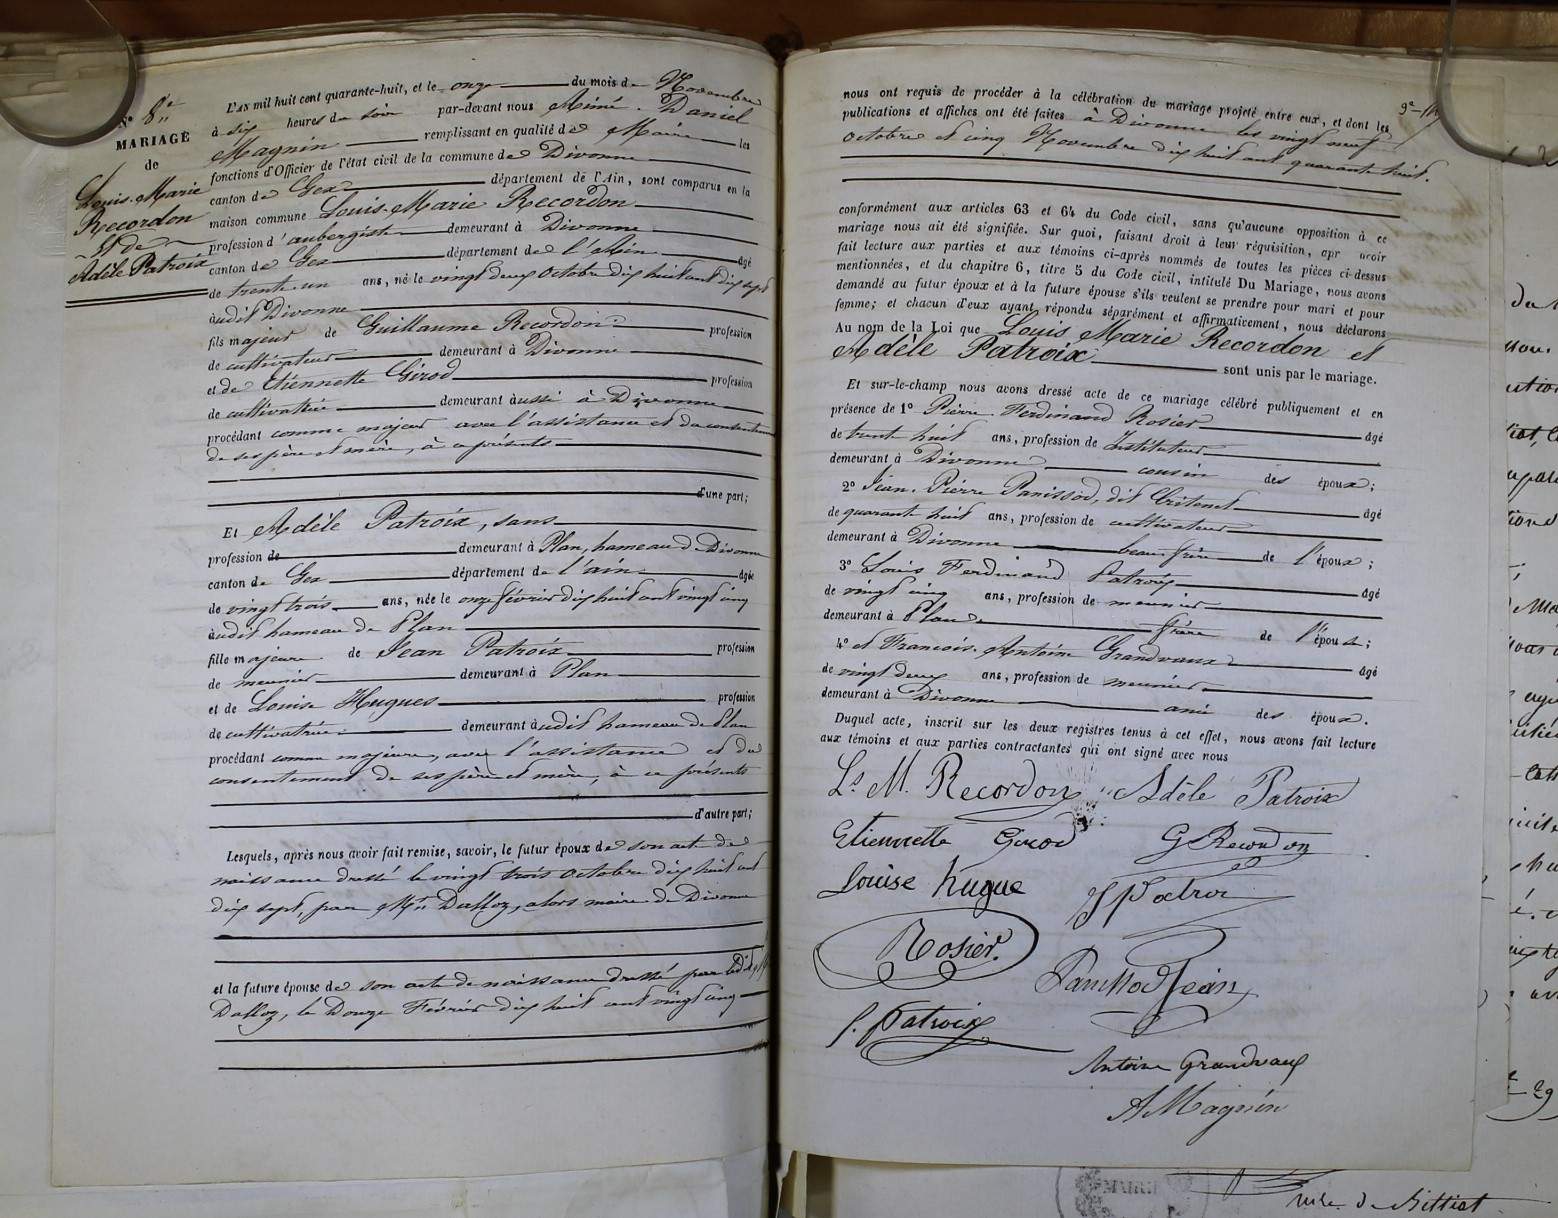 N° 8.
MARIAGE
de
Louis-Marie
Recordon
et de
Adèle Patroix
L'AN mil huit cent quarante-huit, et le onze du mois de Novembre
à six heures du soir par-devant nous Aimé-Daniel
Magnin remplissant en qualité de Maire les
fonctions d'Officier de l'état civil de la commune de Divonne
canton de Gex département de l'Ain, sont comparus en la
maison commune Louis-Marie Recordon
profession d'aubergiste demeurant à Divonne
canton de Gex département de l'ain âgé
de trente-un ans, né le vingt deux octobre dix huit cent dix sept
audit Divonne
fils majeur de Guillaume Recordon profession
de cultivateur demeurant à Divonne
et de Etiennette Girod profession
de cultivatrice demeurant aussi à Divonne
procédant comme majeur avec l'assistance et du consentement
de ses père et mère, à ce présents
d'une part;
Et Adèle Patroix, sans
profession de demeurant à Plan, hameau de Divonne
canton de Gex département de l'ain âgée
de vingt trois ans, née le onze février dix huit cent vingt cinq
audit hameau de Plan
fille majeure de Jean Patroix profession
de meunier demeurant à Plan
et de Louise Hugues profession
de cultivatrice demeurant audit hameau de Plan
procédant comme majeure, avec l'assistance et du
consentement de ses père et mère, à ce présents
d'autre part;
Lesquels, après nous avoir fait remise, savoir, le futur époux de son acte de
naissance dressé le vingt trois octobre dix huit cent
dix sept, par Mr Dalloz, alors maire de Divonne
et la future épouse de son acte de naissance dressé par ledit Mr
Dalloz, le Douze Février dix huit cent vingt cinq
nous ont requis de procéder à la célébration du mariage projeté entre eux, et dont les
publications et affiches ont été faites à Divonne les vingt neuf
octobre et cinq Novembre dix huit cent quarante huit.
conformément aux articles 63 et 64 du Code civil, sans qu'aucune opposition à ce
mariage nous ait été signifiée. Sur quoi, faisant droit à leur réquisition, apr avoir
fait lecture aux parties et aux témoins ci-après nommés de toutes les pièces ci-dessus
mentionnées, et du chapitre 6, titre 5 du Code civil, intitulé Du Mariage, nous avons
demandé au futur époux et à la future épouse s'ils veulent se prendre pour mari et pour
femme; et chacun d'eux ayant répondu séparément et affirmativement, nous déclarons
Au nom de la Loi que Louis Marie Recordon et
Adèle Patroix sont unis par le mariage.
Et sur-le-champ nous avons dressé acte de ce mariage célébré publiquement et en
présence de 1° Pierre Ferdinand Rosier âgé
de trente huit ans, profession de Instituteur
demeurant à Divonne cousin des époux;
2° Jean-Pierre Panissod, dit Critenet âgé
de quarante huit ans, profession de cultivateur
demeurant à Divonne beau-frère de l'époux;
3° Louis Ferdinand Patroix âgé
de vingt cinq ans, profession de meunier
demeurant à Plan frère de l'épouse;
4° et François-Antoine Grandvaux âgé
de vingt deux ans, profession de meunier
demeurant à Divonne ami des époux.
Duquel acte, inscrit sur les deux registres tenus à cet effet, nous avons fait lecture
aux témoins et aux parties contractantes qui ont signé avec nous
Ls M. Recordon Adèle Patroix
Etiennette Girod G Recordon
Louise hugue J Patroi
Rosier.
Panissod Jean
f. Patroix
Antoine Grandvaux
A Magnin
MAIRIE